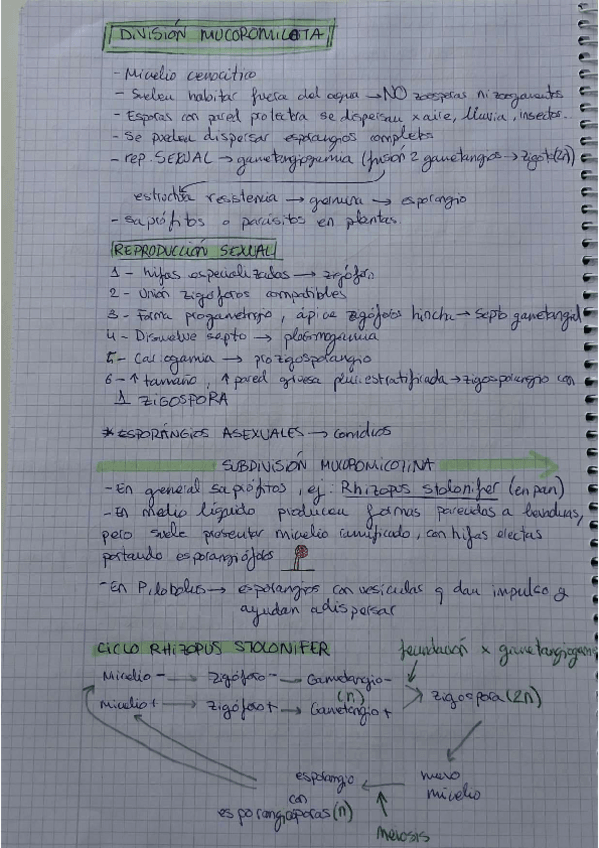 DIVISIÓN MUCOROMICOTA
- Micelio cenocítico
- Suelen habitar fuera del agua → NO zoosporas ni zoogametos
- Esporas con pared protectra se dispersan x aire, lluvia, insectos..
- Se pueden dispersar esporangios completos
- rep. SEXUAL → gametangiogamia (fusión 2 gametangios → zigoto (2n)
estructura resistencia → germina → esporangio
- saprófitos o parásitos en plantas.
REPRODUCCIÓN SEXUAL
1 - hifas especializadas → zigóforo
2 - Unión zigóforos compatibles
3 - Forma progametangio, ápice zigóforos hincha → septo gametangial
4 - Disuelve septo → plasmogamia
5 - Cariogamia → prozigosporangio
6 - ↑ tamaño, ↑ pared gruesa pluriestratificada → zigosporangio con
1 ZIGOSPORA
* ESPORÁNGIOS ASEXUALES → conidios
SUBDIVISIÓN MUCOROMICOTINA
- En general saprófitos, ej: Rhizopus stolonifer (en pan)
- En medio líquido producen formas parecidas a levaduras,
pero suele presentar micelio ramificado, con hifas erectas
portando esporangióforos
- En Pilobolus → esporangios con vesículas q dan impulso y
ayudan a dispersar
CICLO RHIZOPUS STOLONIFER
fecundación x gametangiogamia
Micelio - → Zigóforo - → Gametangio -
(n)
zigospora (2n)
micelio + → zigóforo + → Gametangio +
esporangio
con
esporangiosporas (n)
nuevo
micelio
Meiosis